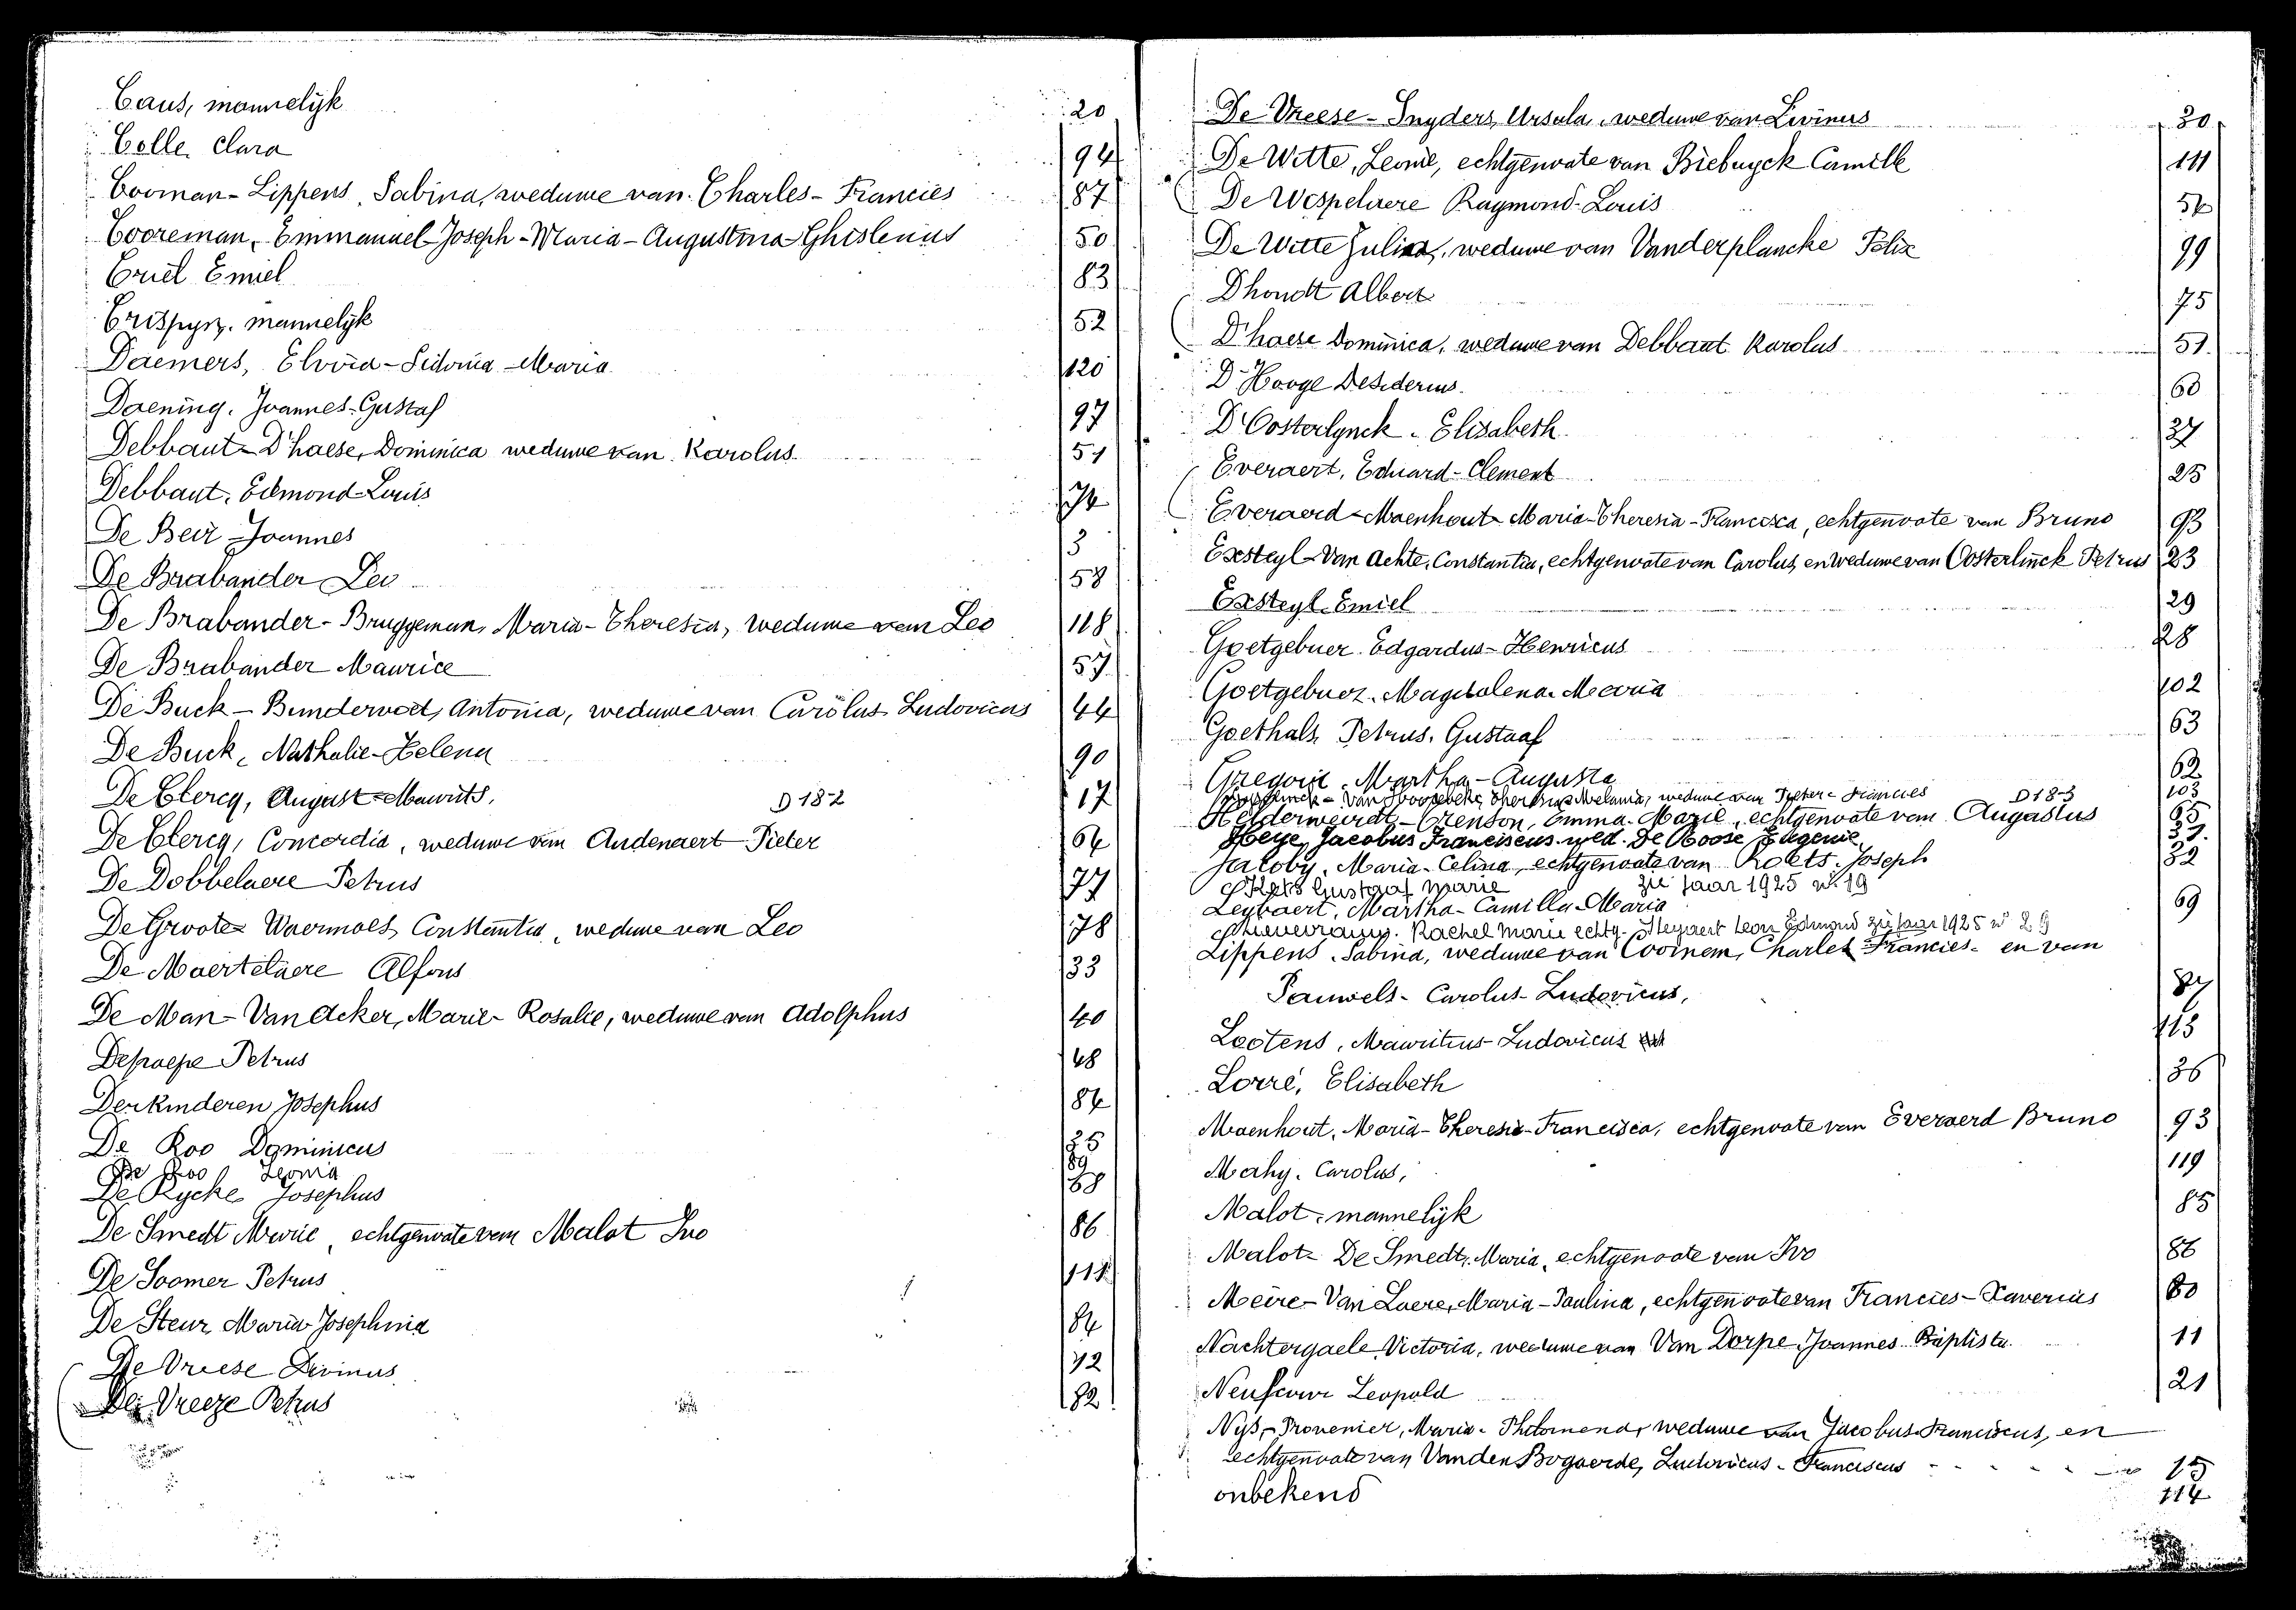 Caus, mannelijk 20
Colle, Clara 94
Cooman-Lippens, Sabina, weduwe van Charles-Francies 87
Cooreman, Emmanuel-Joseph-Maria-Augustina-Ghislenus 50
Criel Emiel 83
Crispyn, mannelijk 52
Daemers, Elvira-Sidonia-Maria 120
Daening, Joannes-Gustaf 97
Debbaut-D'haese, Dominica weduwe van Karolus 51
Debbaut, Edmond-Louis 74
De Beir Joannes 3
De Brabander Leo 58
De Brabander-Bruggeman, Maria-Theresia, weduwe van Leo 118
De Brabander Maurice 57
De Buck-Bundervoet, Antonia, weduwe van Carolus Ludovicus 44
De Buck, Nathalie-Helena 90
De Clercq, August-Mauvits, D 182 17
De Clercq, Concordia, weduwe van Audenaert Pieter 64
De Dobbelaere Petrus 77
De Groote-Waermoes, Constantia, weduwe van Leo 78
De Maertelaere Alfons 33
De Man-Van Acker, Marie-Rosalie, weduwe van Adolphus 40
Depaepe Petrus 48
Derkinderen Josephus 84
De Roo Dominicus 35
De Roo Leonia 89
De Rycke Josephus 38
De Smedt Marie, echtgenoote van Malot Ivo 86
De Soomer Petrus 111
De Steur Maria Josephina 84
De Vriese Livinus 72
De Vreeze Petrus 82
De Vreese-Snyders, Ursula, weduwe van Livinus 30
De Witte, Leonie, echtgenoote van Biebuyck Camille 111
De Wespelaere Raymond-Louis 54
De Witte Julia, weduwe van Vanderplancke Felix 99
Dhondt Albert 75
D'haese Dominica, weduwe van Debbaut Karolus 51
D'Hooge Desiderius 60
D'Oosterlynck Elisabeth 37
Everaert, Eduard-Clement 25
Everaerd-Maenhout Maria-Theresia-Francisca, echtgenoote van Bruno 93
Exsteyl-Van Achte, Constantia, echtgenoote van Carolus, en weduwe van Oosterlinck Petrus 23
Exsteyl Emiel 29
Goetgebuer Edgardus-Henricus 28
Goetgebuer Magdalena Maria 102
Goethals, Petrus, Gustaaf 63
Gregoir, Martha-Augusta 62
weduwe van Pieter-Francies D 183 103
Helderweirdt-Crenson, Emma-Marie, echtgenoote van Augustus 65
Heye, Jacobus Franciscus wed. De Roose Eugenie 37
Jacoby, Maria-Celina, echtgenoote van Roets Joseph 32
Kets Gustaaf Marie zie jaar 1925 nº 19
Leybaert, Martha-Camilla-Maria 69
Rachel Marie echtg. Steyaert Leon Edmond zie jaar 1925 nº 29
Lippens, Sabina, weduwe van Coomem, Charles Francies en van
Pauwels-Carolus-Ludovicus, 87
Lootens, Mauritius-Ludovicus 115
Lorré, Elisabeth 36
Maenhout, Maria-Theresia-Francisca, echtgenoote van Everaerd Bruno 93
Mahy, Carolus, 119
Malot, mannelijk 85
Malot-De Smedt, Maria, echtgenoote van Ivo 86
Meire-Van Laere, Maria-Paulina, echtgenoote van Francies-Xaverius 80
Nachtergaele Victoria, weduwe van Van Dorpe Joannes Baptista 11
Leopold 21
Nys-Provenier, Maria-Philomena, weduwe van Jacobus-Franciscus, en
echtgenoote van Vanden Bogaerde, Ludovicus-Franciscus 15
onbekend 114